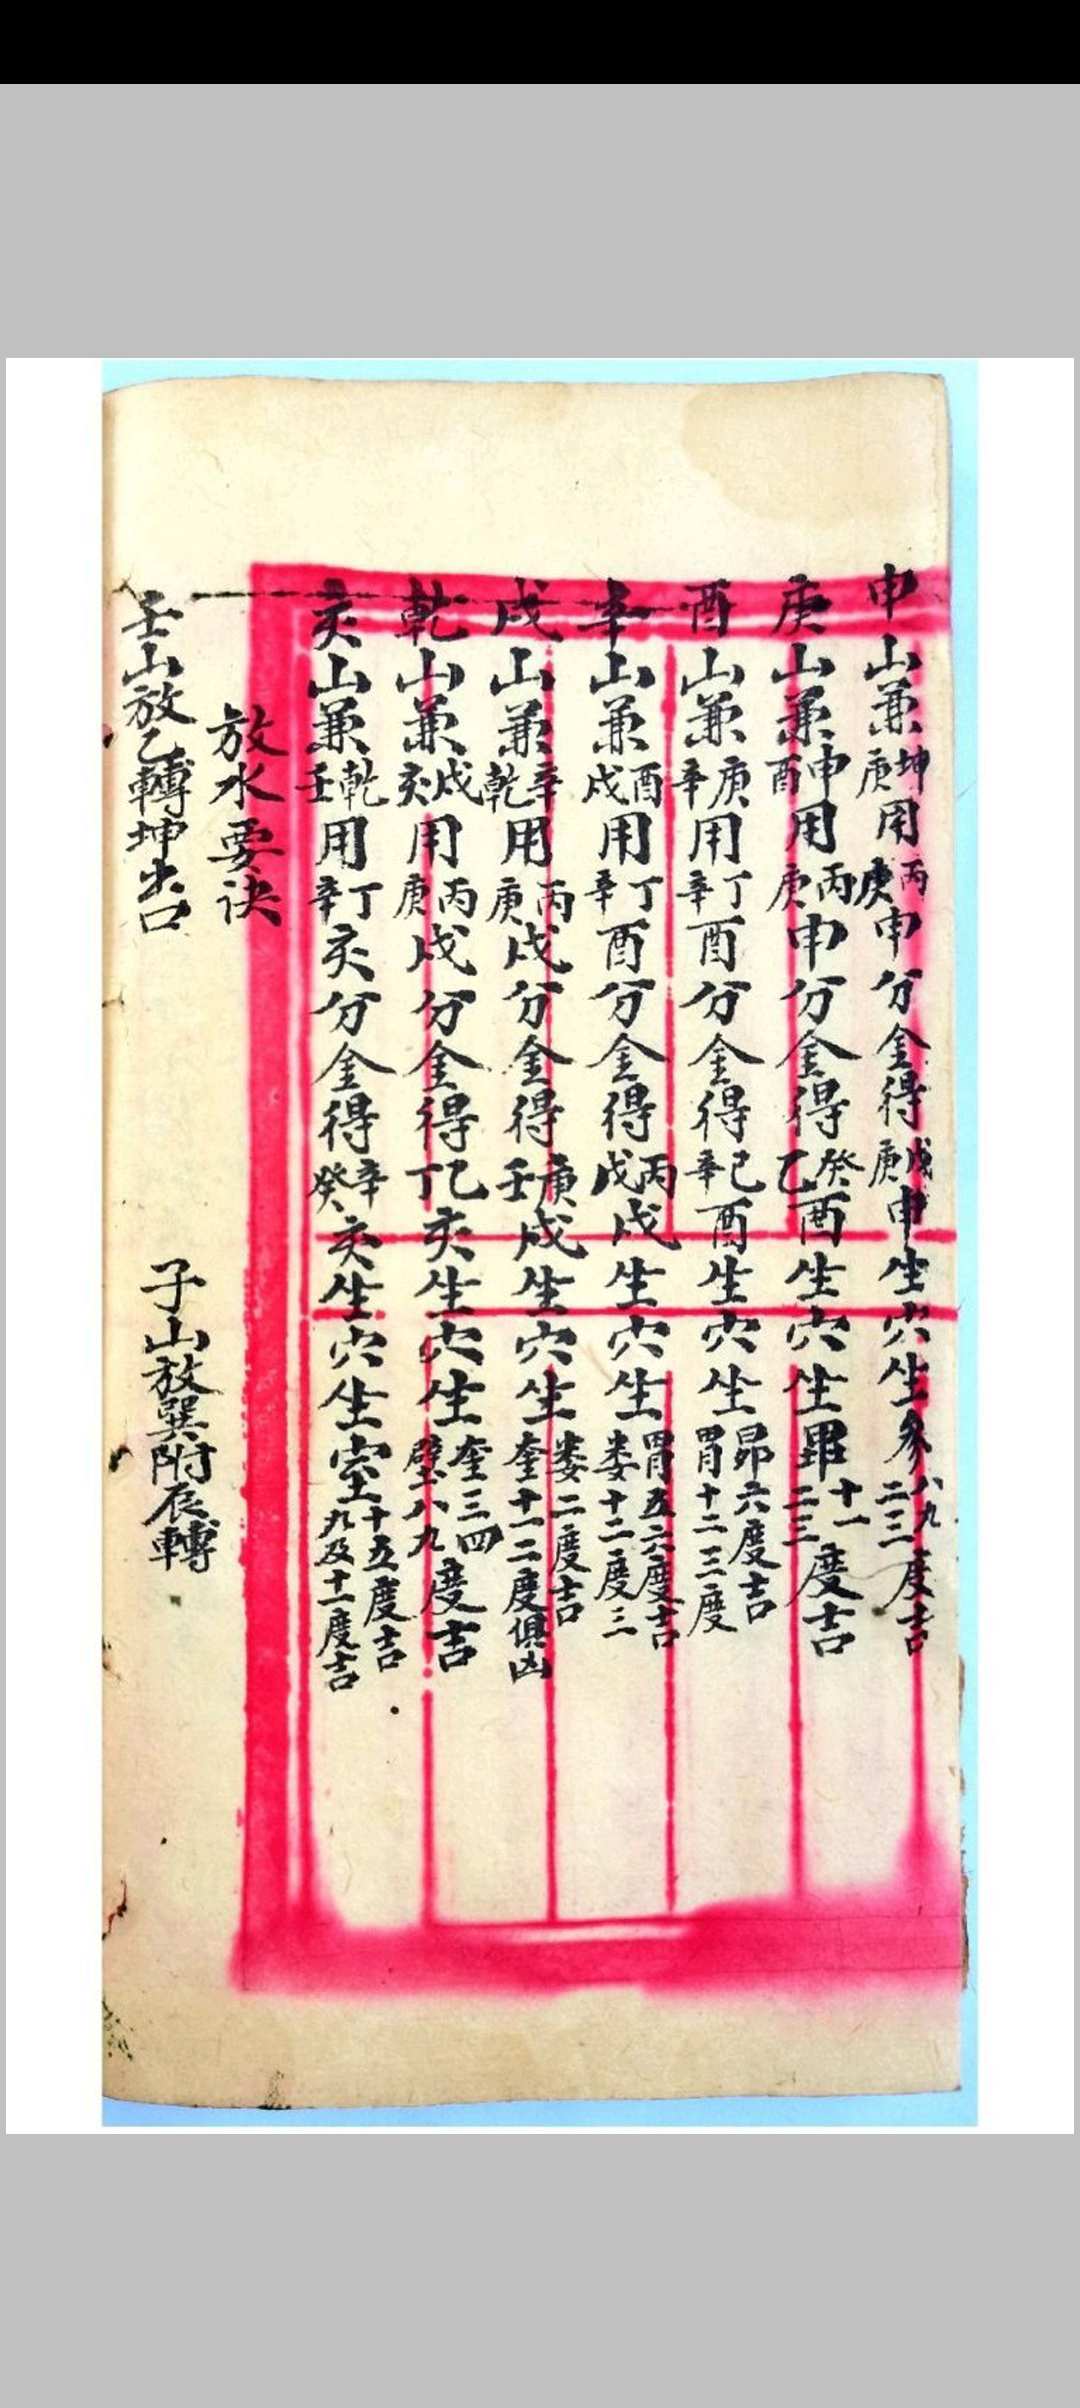 申山兼坤庚用丙庚申分金得戊庚申生穴生參八九二三度吉
庚山兼申酉用丙庚申分金得癸乙酉生穴生畢十一二三度吉
酉山兼庚辛用丁辛酉分金得己辛酉生穴生昴六度吉胃十二三度
辛山兼酉戌用丁辛酉分金得丙戊戌生穴生胃五六度吉婁十二度三
戌山兼辛乾用丙庚戌分金得庚壬戌生穴生婁二度吉奎十一二度俱凶
乾山兼戌亥用丙庚戌分金得乙丁亥生穴生奎三四壁八九度吉
亥山兼乾壬用丁辛亥分金得辛癸亥生穴生室十五度吉九及十一度吉
放水要诀
壬山放乙轉坤出口
子山放巽附辰轉